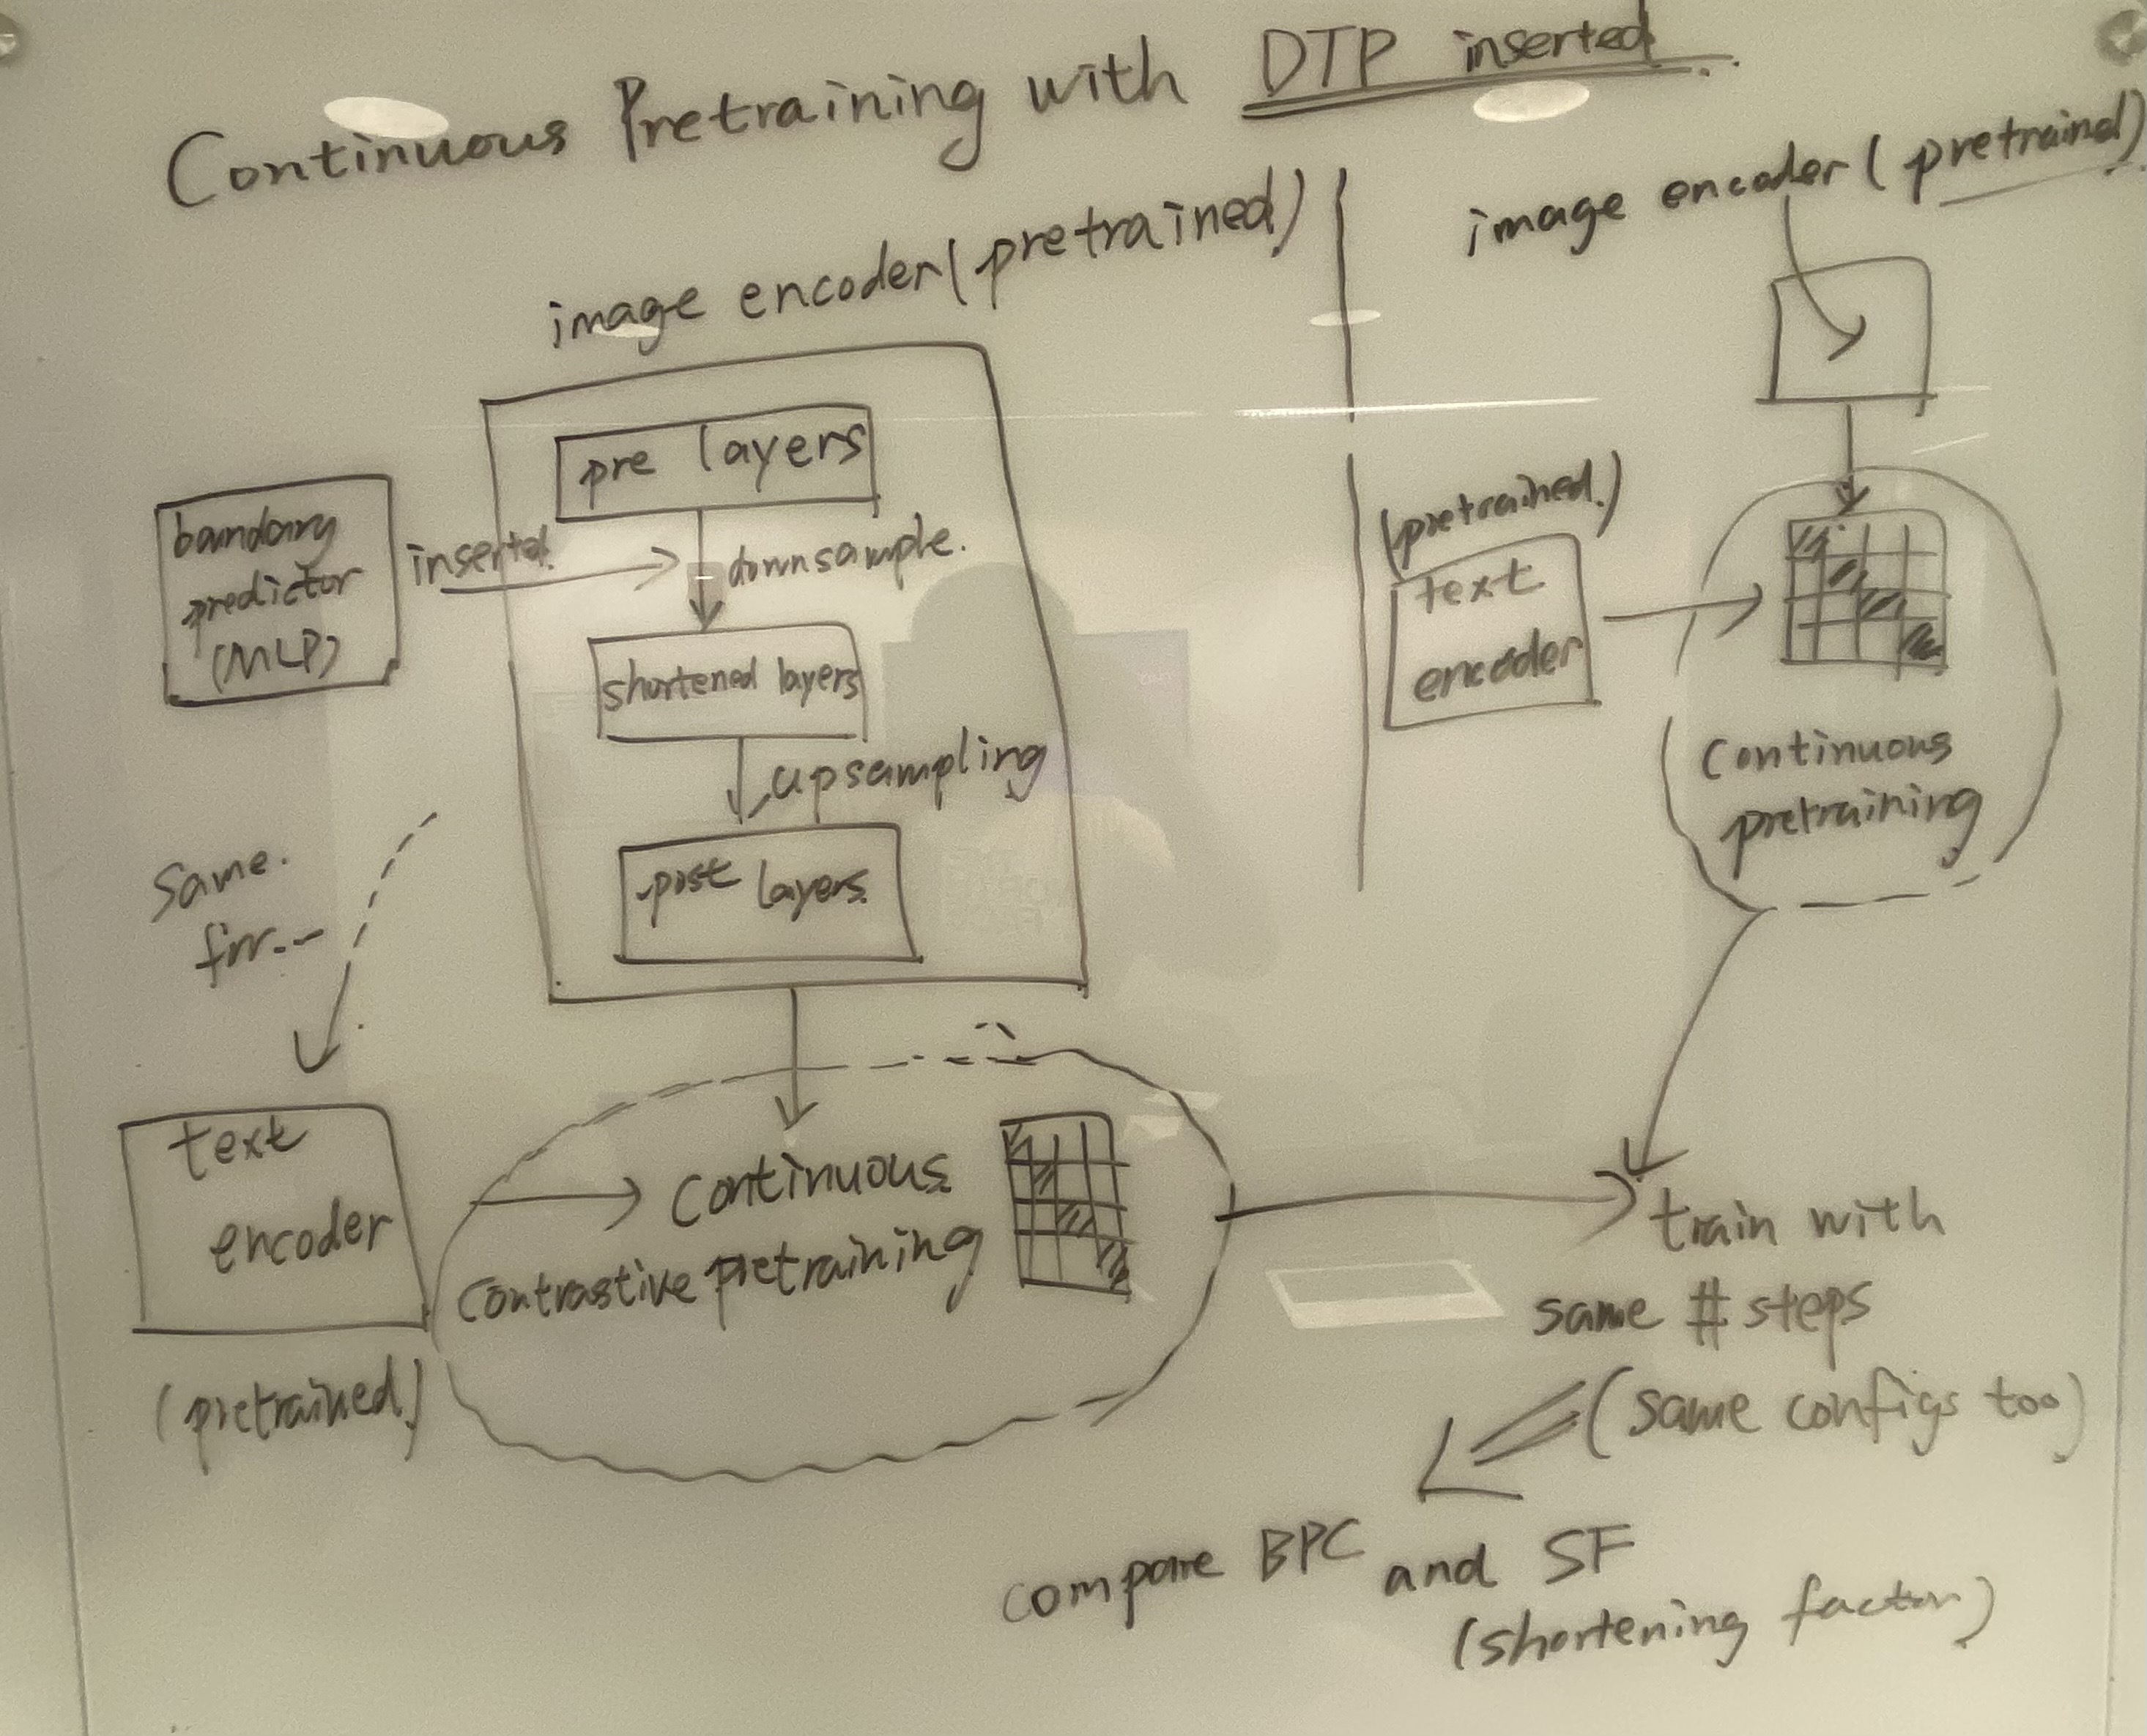 Continuous Pretraining with DTP inserted
image encoder (pretrained)
pre layers
boundary
predictor
(MLP)
inserted
downsample.
shortened layers
upsampling
post layers
Same.
text
encoder
(pretrained)
Continuous
Contrastive pretraining
image encoder (pretrained)
(pretrained)
text
encoder
Continuous
pretraining
train with
same # steps
(same configs too)
compare BPC and SF
(shortening factor)